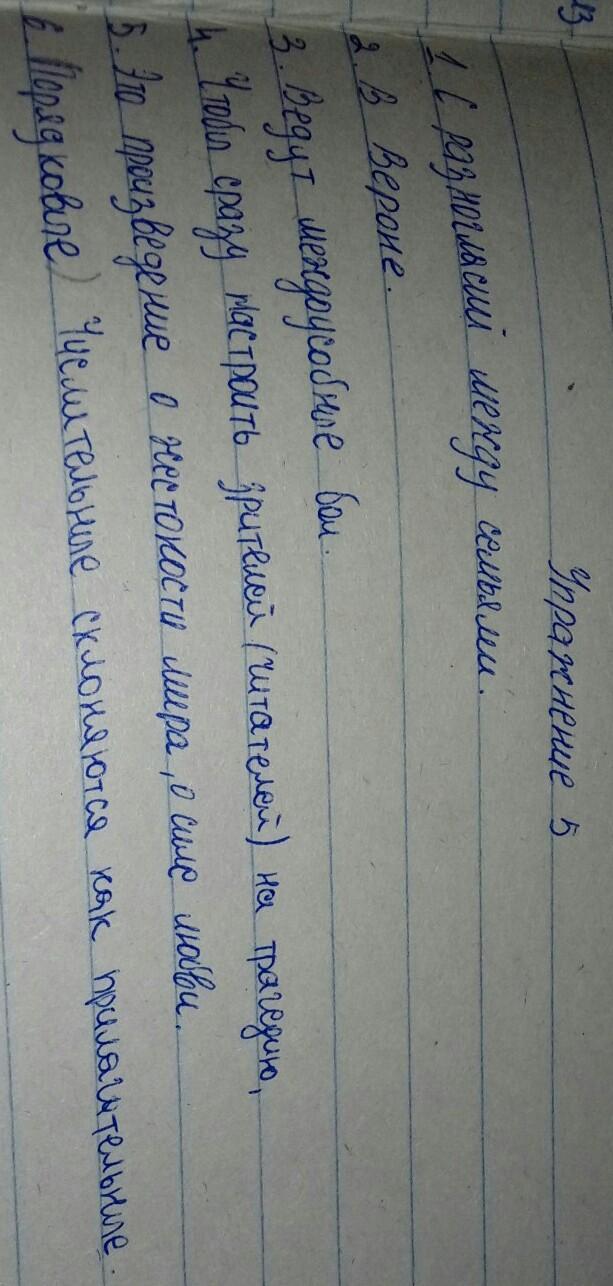 13
Упражнение 5
1. С разногласий между семьями.
2. В Вероне.
3. Ведут междоусобные бои.
4. Чтобы сразу настроить зрителей (читателей) на трагедию,
5. Это произведение о жестокости мира, о силе любви.
6. Порядковые) Числительные склоняются как прилагательные.